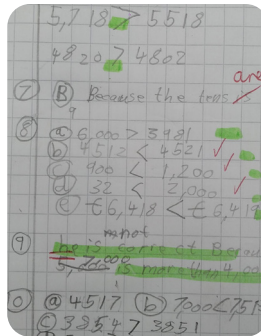 5,718 > 5518
4820 > 4802
are
⑦ Ⓑ Because the tens is
9
⑧ ⓐ 6,000 > 3981
ⓑ 4512 < 4521 ✓
ⓒ 900 < 1,200
ⓓ 32 < 2,000 ✓
ⓔ €6,418 < €6,419
not
⑨ he is corre ct Becau
5,200 is more than 4,00
0 ⓐ 4517 ⓑ 7000<751
ⓒ 3854 > 3851